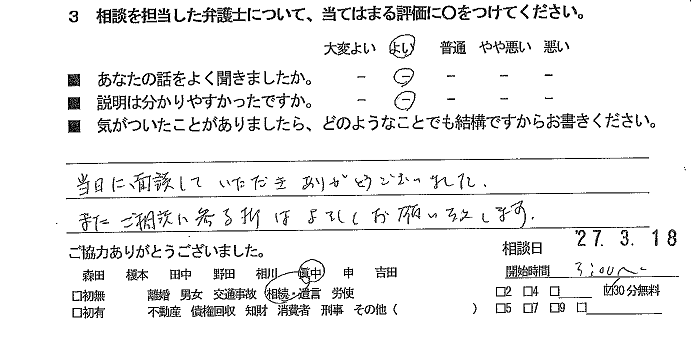 3 相談を担当した弁護士について、当てはまる評価に〇をつけてください。
大変よい よい 普通 やや悪い 悪い
■ あなたの話をよく聞きましたか。 － － － － －
■ 説明は分かりやすかったですか。 － － － － －
■ 気がついたことがありましたら、どのようなことでも結構ですからお書きください。
当日に面談していただきありがとうございました。
またご相談に参る折はよろしくお願い致します。
ご協力ありがとうございました。
相談日 '27. 3. 18
森田 榎本 田中 野田 相川 眞中 申 吉田
開始時間 3:00～
□初無 離婚 男女 交通事故 相続・遺言 労使
□2 □4 □ ☑30分無料
□初有 不動産 債権回収 知財 消費者 刑事 その他（ ）
□5 □7 □9 □